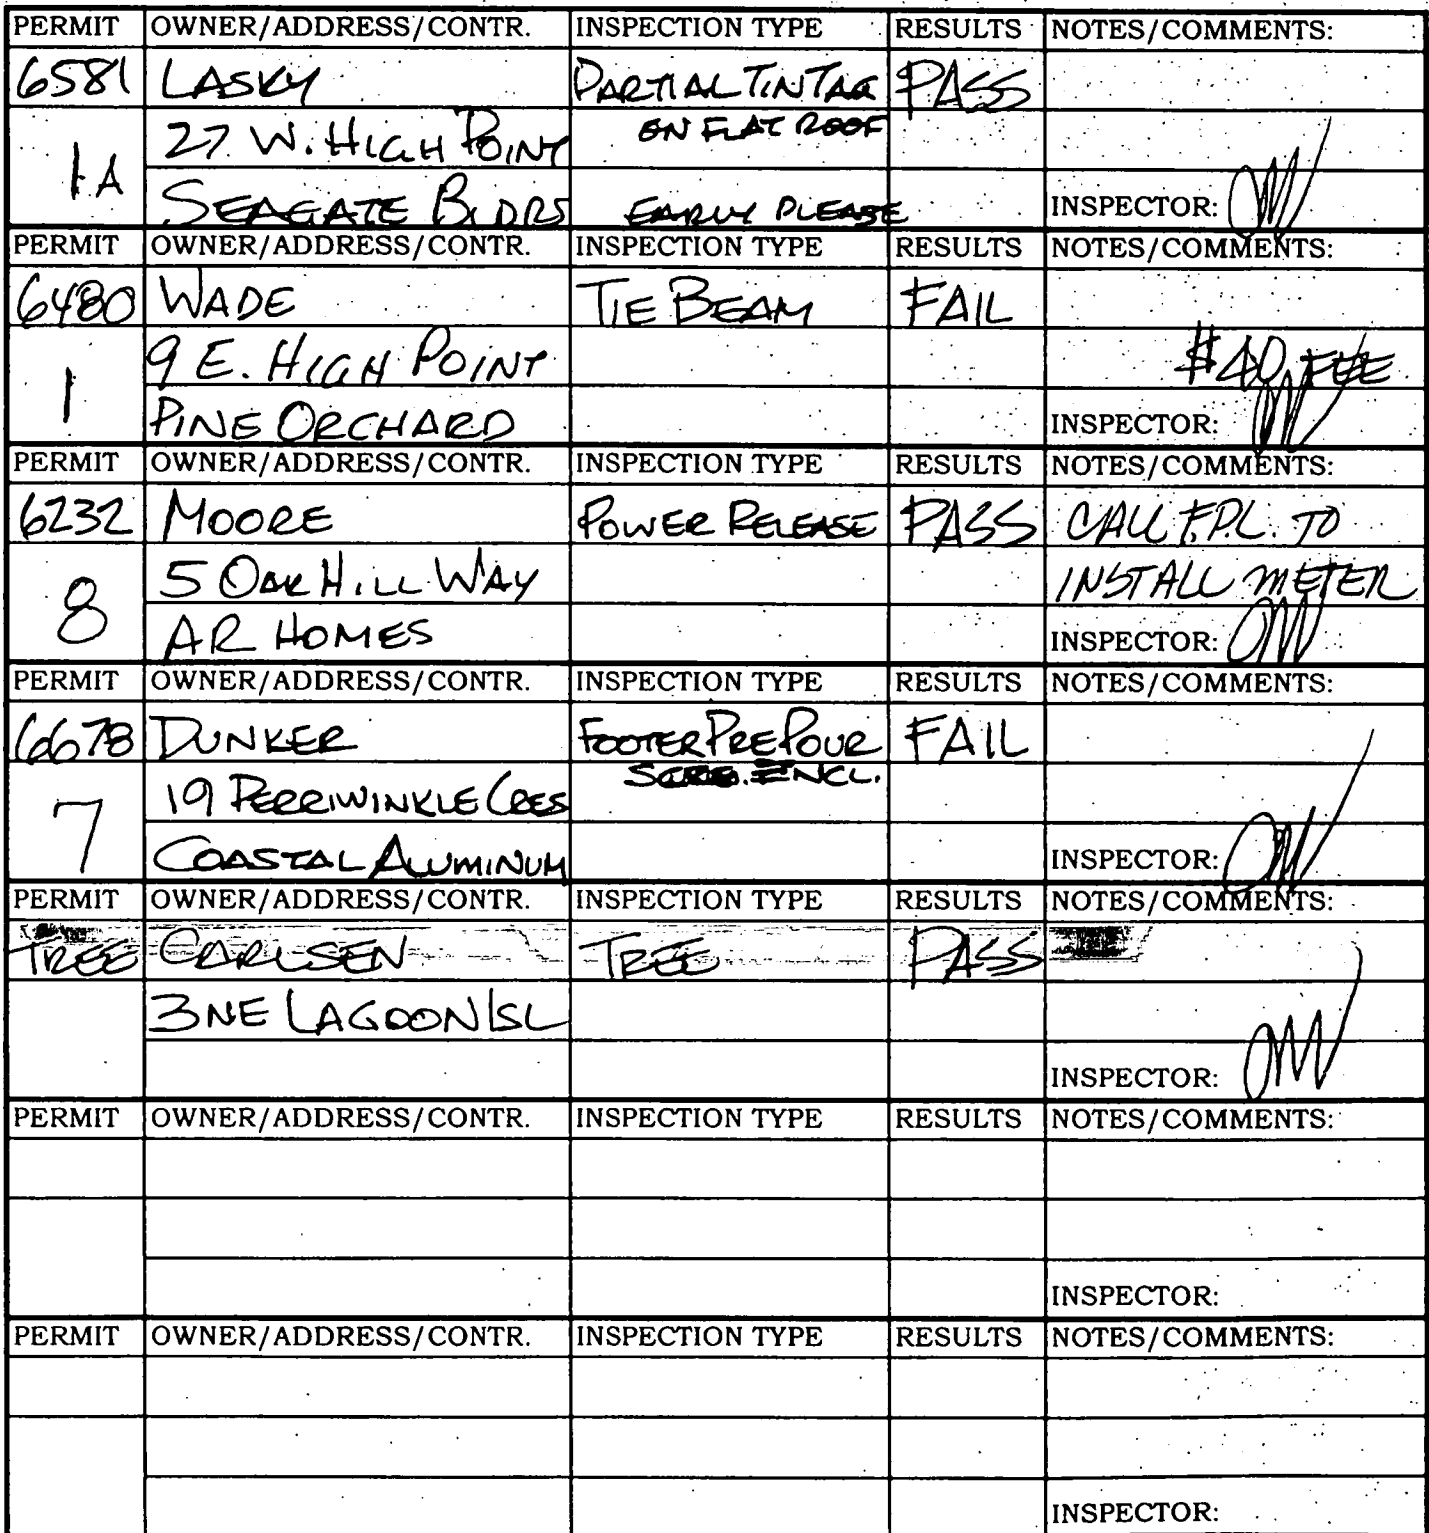 PERMIT OWNER/ADDRESS/CONTR. INSPECTION TYPE RESULTS NOTES/COMMENTS:
6581 LASKY PARTIAL TIN TAG PASS
27 W. HIGH POINT ON FLAT ROOF
1A SEAGATE BLDRS EARLY PLEASE INSPECTOR:
PERMIT OWNER/ADDRESS/CONTR. INSPECTION TYPE RESULTS NOTES/COMMENTS:
6480 WADE TIE BEAM FAIL
9 E. HIGH POINT $40 FEE
1 PINE ORCHARD INSPECTOR:
PERMIT OWNER/ADDRESS/CONTR. INSPECTION TYPE RESULTS NOTES/COMMENTS:
6232 MOORE POWER RELEASE PASS CALL F.P.L. TO
5 OAK HILL WAY INSTALL METER
8 AR HOMES INSPECTOR:
PERMIT OWNER/ADDRESS/CONTR. INSPECTION TYPE RESULTS NOTES/COMMENTS:
6678 DUNKER FOOTER PRE POUR FAIL
19 PERRIWINKLE CRES ENCL.
7 COASTAL ALUMINUM INSPECTOR:
PERMIT OWNER/ADDRESS/CONTR. INSPECTION TYPE RESULTS NOTES/COMMENTS:
TREE CARLSEN TREE PASS
3 NE LAGOON ISL
INSPECTOR:
PERMIT OWNER/ADDRESS/CONTR. INSPECTION TYPE RESULTS NOTES/COMMENTS:
INSPECTOR:
PERMIT OWNER/ADDRESS/CONTR. INSPECTION TYPE RESULTS NOTES/COMMENTS:
INSPECTOR: